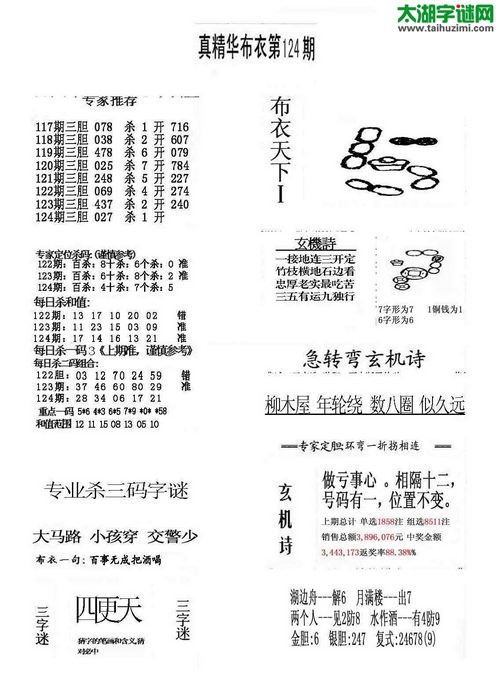 太湖字谜网
www.taihuzimi.com
真精华布衣第124期
专家推荐
117期三胆 078 杀 1 开 716
118期三胆 038 杀 2 开 607
119期三胆 478 杀 6 开 079
120期三胆 025 杀 7 开 784
121期三胆 248 杀 5 开 227
122期三胆 069 杀 4 开 274
123期三胆 437 杀 2 开 240
124期三胆 027 杀 1 开
布衣天下I
专家定位杀码:(谨慎参考)
122期: 百杀: 8十杀: 6个杀: 0 准
123期: 百杀: 6十杀: 8个杀: 2 准
124期: 百杀: 4十杀: 7个杀: 5
每日杀和值:
122期: 13 17 10 20 02 错
123期: 11 23 15 03 09 准
124期: 17 14 16 13 21 准
每日杀一码3《上期准, 谨慎参考》
每日杀二码组合:
122胆: 03 12 70 24 59 错
123期: 37 46 60 80 29 准
124期: 28 34 06 17 21
重点一码 5*6 4*3 6*5 7*9 *0* *58
和值范围 12 11 15 08 13 05 10
玄機詩
一接地连三开定
竹枝横地石边看
忠厚老实最吃苦
三五有运九独行
7字形为7 1铜钱为1
6字形为6
急转弯玄机诗
柳木屋 年轮绕 数八圈 似久远
==专家定胆:环弯一折拐相连 ==
玄机诗
做亏事心 。相隔十二,
号码有一, 位置不变。
上期总计 单选1858注 组选8511注
销售总额3,896,076元 中奖金额
3,443,173返奖率88.38%%
专业杀三码字谜
大马路 小孩穿 交警少
布衣一句: 百事无成把酒喝
三字迷
四更天
猜字的笔画和含义,猜
对必中
三字迷
湖边舟---解6 月满楼---出7
两个人---见2防8 水作酒---有4防9
金胆:6 银胆:247 复式:24678(9)